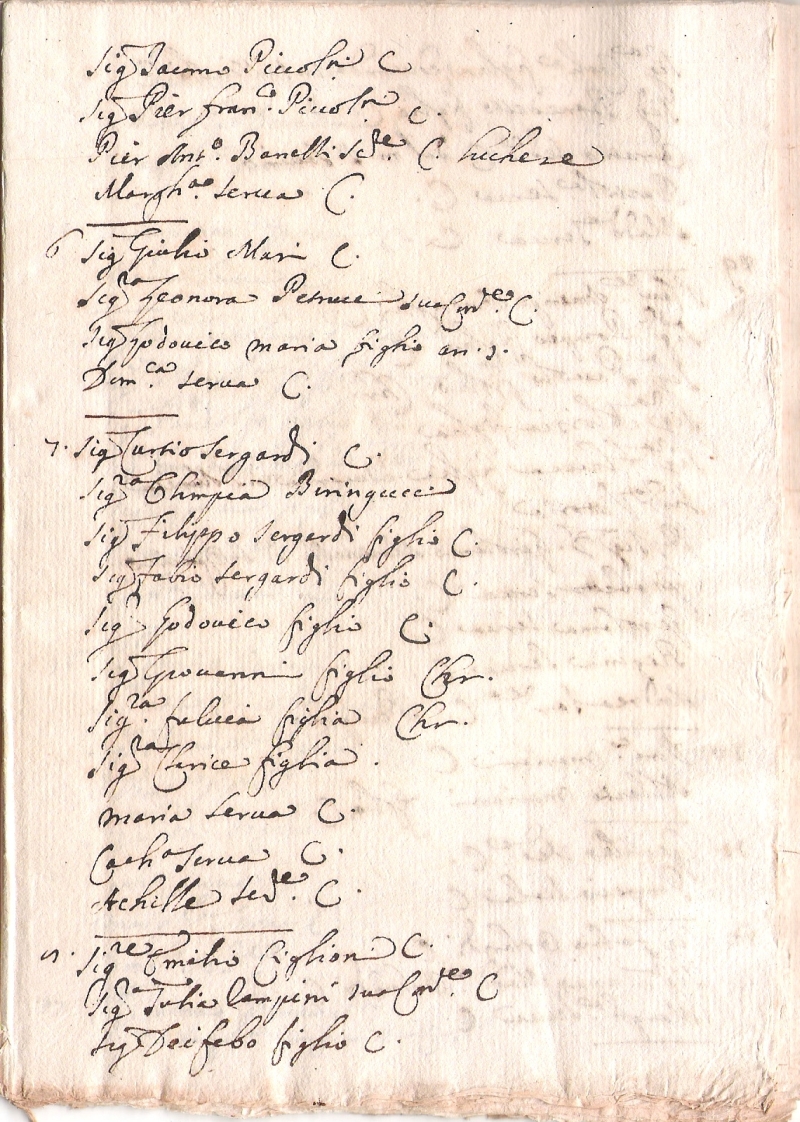 Sig Iacomo Piccolni C
Sig Pier Franc.o Piccolni C.
Pier Ant.o Banelli Se.re C. luchese
Margh.a serua C.
6 Sig Giulio Mari C.
Sig.ra Leonora Petrucci sua C. C.
Sig Lodouico maria figlio an. 3.
Dom.ca serua C.
7. Sig Curtio Sergardi C.
Sig.ra Olimpia Biringucci
Sig Filippo Sergardi figlio C.
Sig Fabio Sergardi figlio C.
Sig Lodouico figlio C.
Sig Giouanni figlio Chr.
Sig.ra fuluia figlia Chr.
Sig.ra Clerice figlia.
Maria serua C.
Cath.a serua C.
Achille C.
Sig.re Emilio C.
Sig.ra Iulia Campini sua C
Sig Deifebo figlio C.